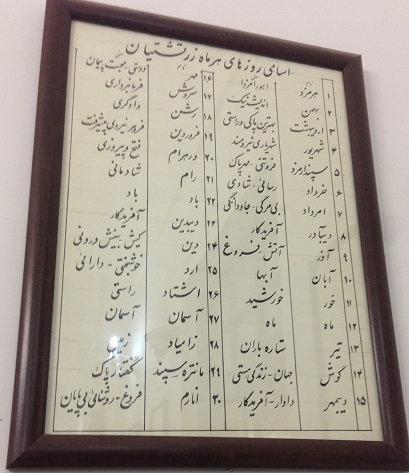 اسامی روزهای هر ماه زرتشتیان
۱ هرمزد اهورامزدا ۱۶ مهر دوستی - محبت پیمان
۲ بهمن اندیشه نیک ۱۷ سروش فرمانبرداری
۳ اردیبهشت بهترین پاکی و راستی ۱۸ رشن دادگری
۴ شهریور شهریاری نیرومند ۱۹ فروردین فروهر نیروی پیشرفت
۵ سپندارمزد فروتنی - مهر پاک ۲۰ ورهرام فتح و پیروزی
۶ خرداد رسایی - شادی ۲۱ رام شادمانی
۷ امرداد بی مرگی - جاودانگی ۲۲ باد باد
۸ دیبآذر آفریدگار ۲۳ دیبدین آفریدگار
۹ آذر آتش - فروغ ۲۴ دین کیش - بینش درونی
۱۰ آبان آبها ۲۵ ارد خوشبختی - دارائی
۱۱ خور خورشید ۲۶ اشتاد راستی
۱۲ ماه ماه ۲۷ آسمان آسمان
۱۳ تیر ستاره باران ۲۸ زامیاد زمین
۱۴ گوش جهان - زندگی هستی ۲۹ مانتره سپند گفتار پاک
۱۵ دیبمهر دادار - آفریدگار ۳۰ انارم فروغ - روشنائی بی پایان